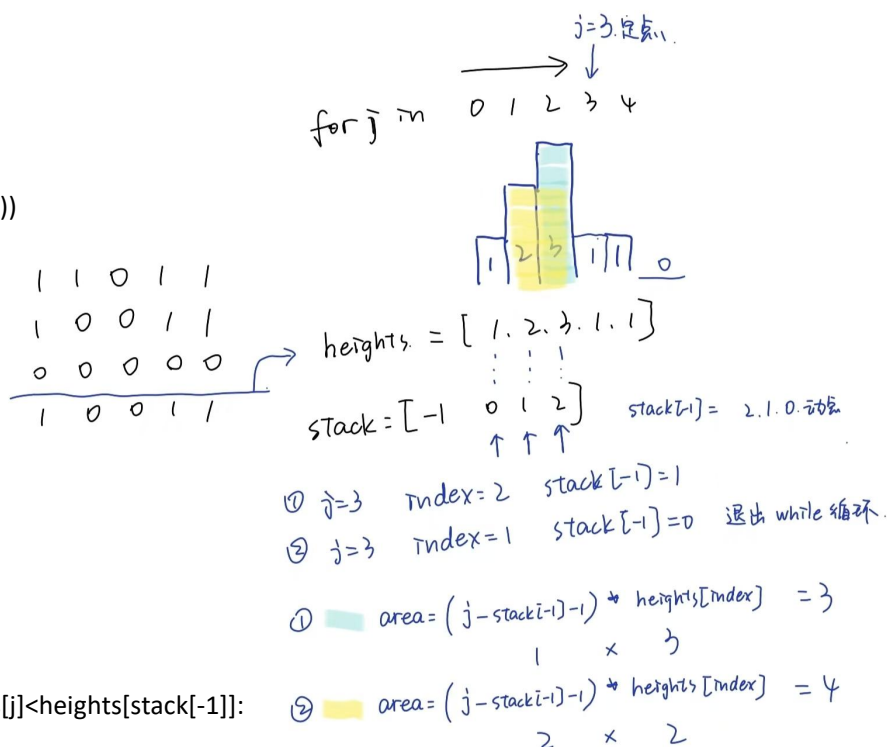 j=3.定点
for j in 0 1 2 3 4
))
1 2 3 1 1 0
1 1 0 1 1
1 0 0 1 1
0 0 0 0 0
1 0 0 1 1
heights. = [ 1. 2. 3. 1. 1]
stack=[-1 0 1 2] stack[-1]= 2.1.0.动点
① j=3 index=2 stack[-1]=1
② j=3 index=1 stack[-1]=0 退出 while 循环.
① area=(j-stack[-1]-1) * heights[index] =3
1 × 3
[j]<heights[stack[-1]]:
② area=(j-stack[-1]-1) * heights[index] =4
2 × 2